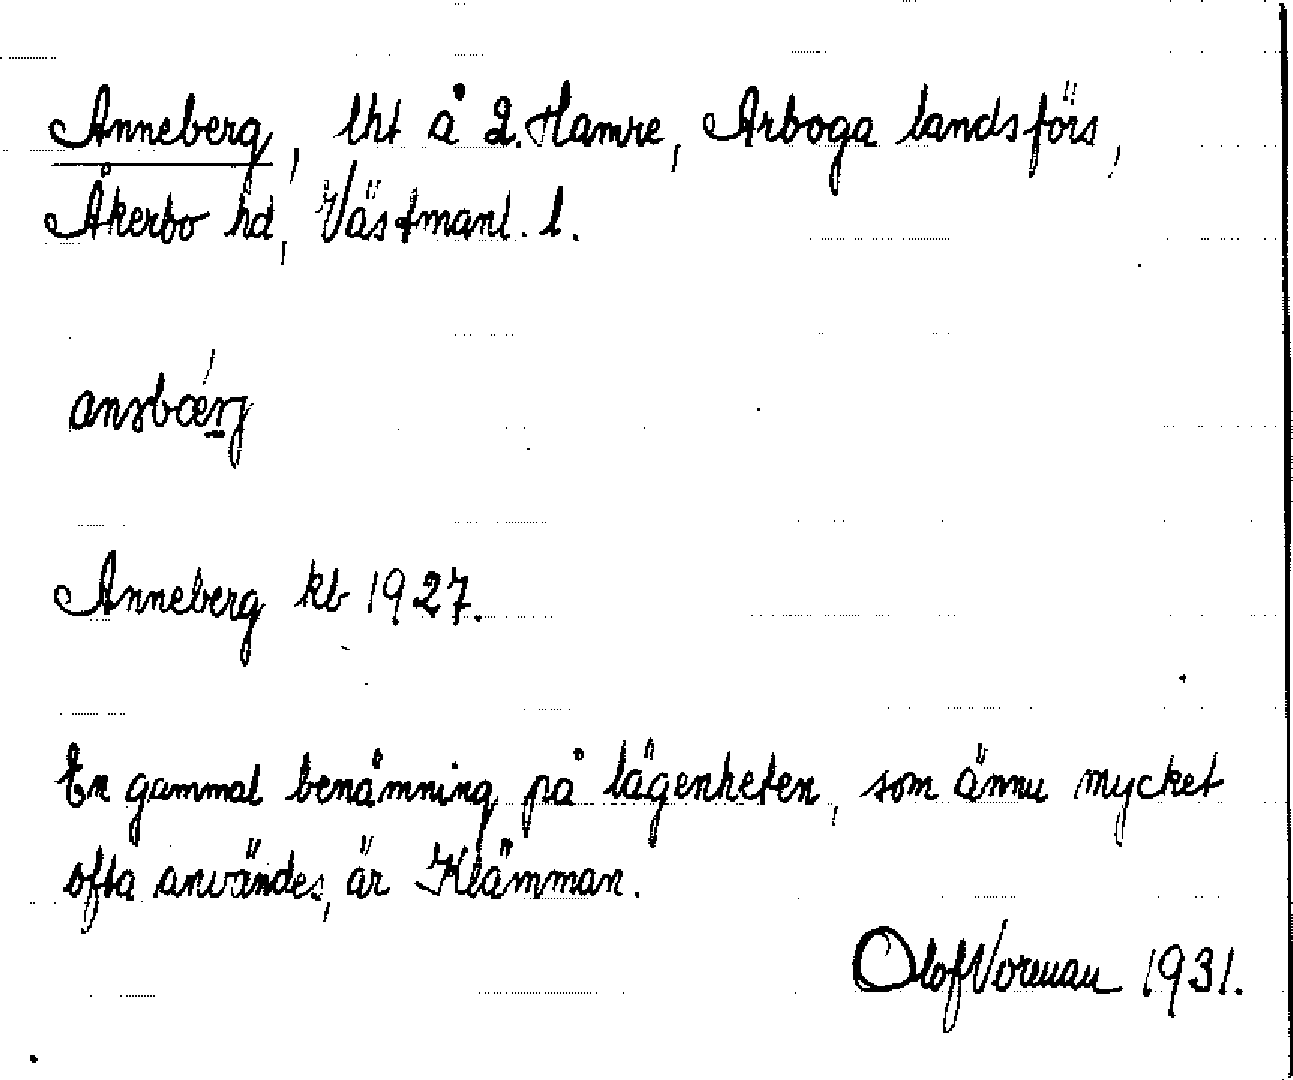 Anneberg, lht å 2. Hamre, Arboga landsförs,
Åkerbo hd, Västmanl. l.
Anneberg kb 1927.
En gammal benämning på lägenheten, som ännu mycket
ofta användes, är Klämman.
Olof Vorman 1931.